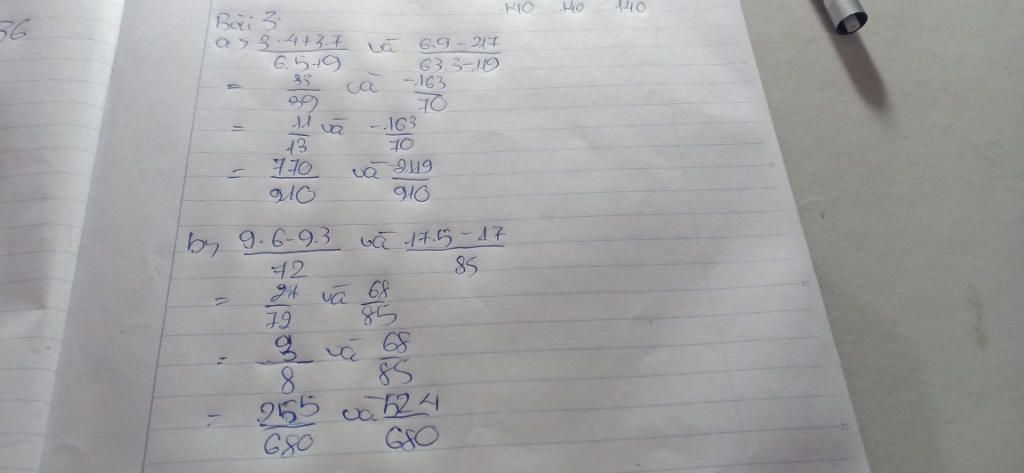 36
140 140 140
Bài 3:
a, 3.4+3.7 / 6.5+9 và 6.9-217 / 63.3-119
= 33/39 và -163/70
= 11/13 và -163/70
= 770/910 và 2119/910
b, 9.6-9.3 / 72 và 17.5-17 / 85
= 27/72 và 68/85
= 3/8 và 68/85
= 255/680 và 524/680